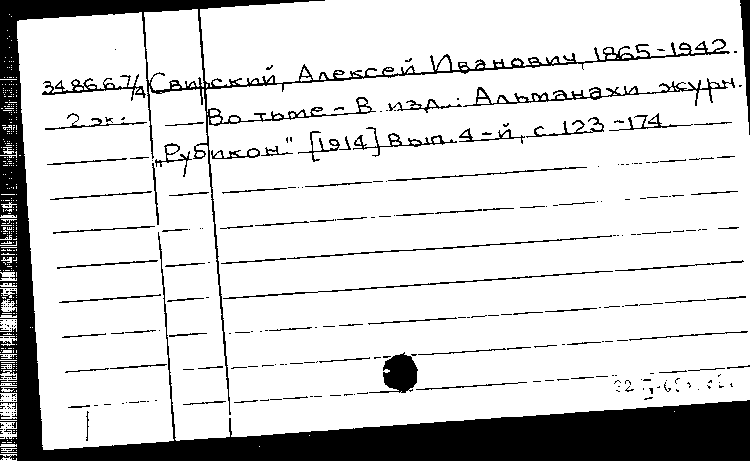 34.866.7/4 Свирский, Алексей Иванович, 1865-1942.
2 эк. Во тьме - В изд.: Альманахи журн.
„Рубикон" [1914] Вып. 4-й, с. 123-174.